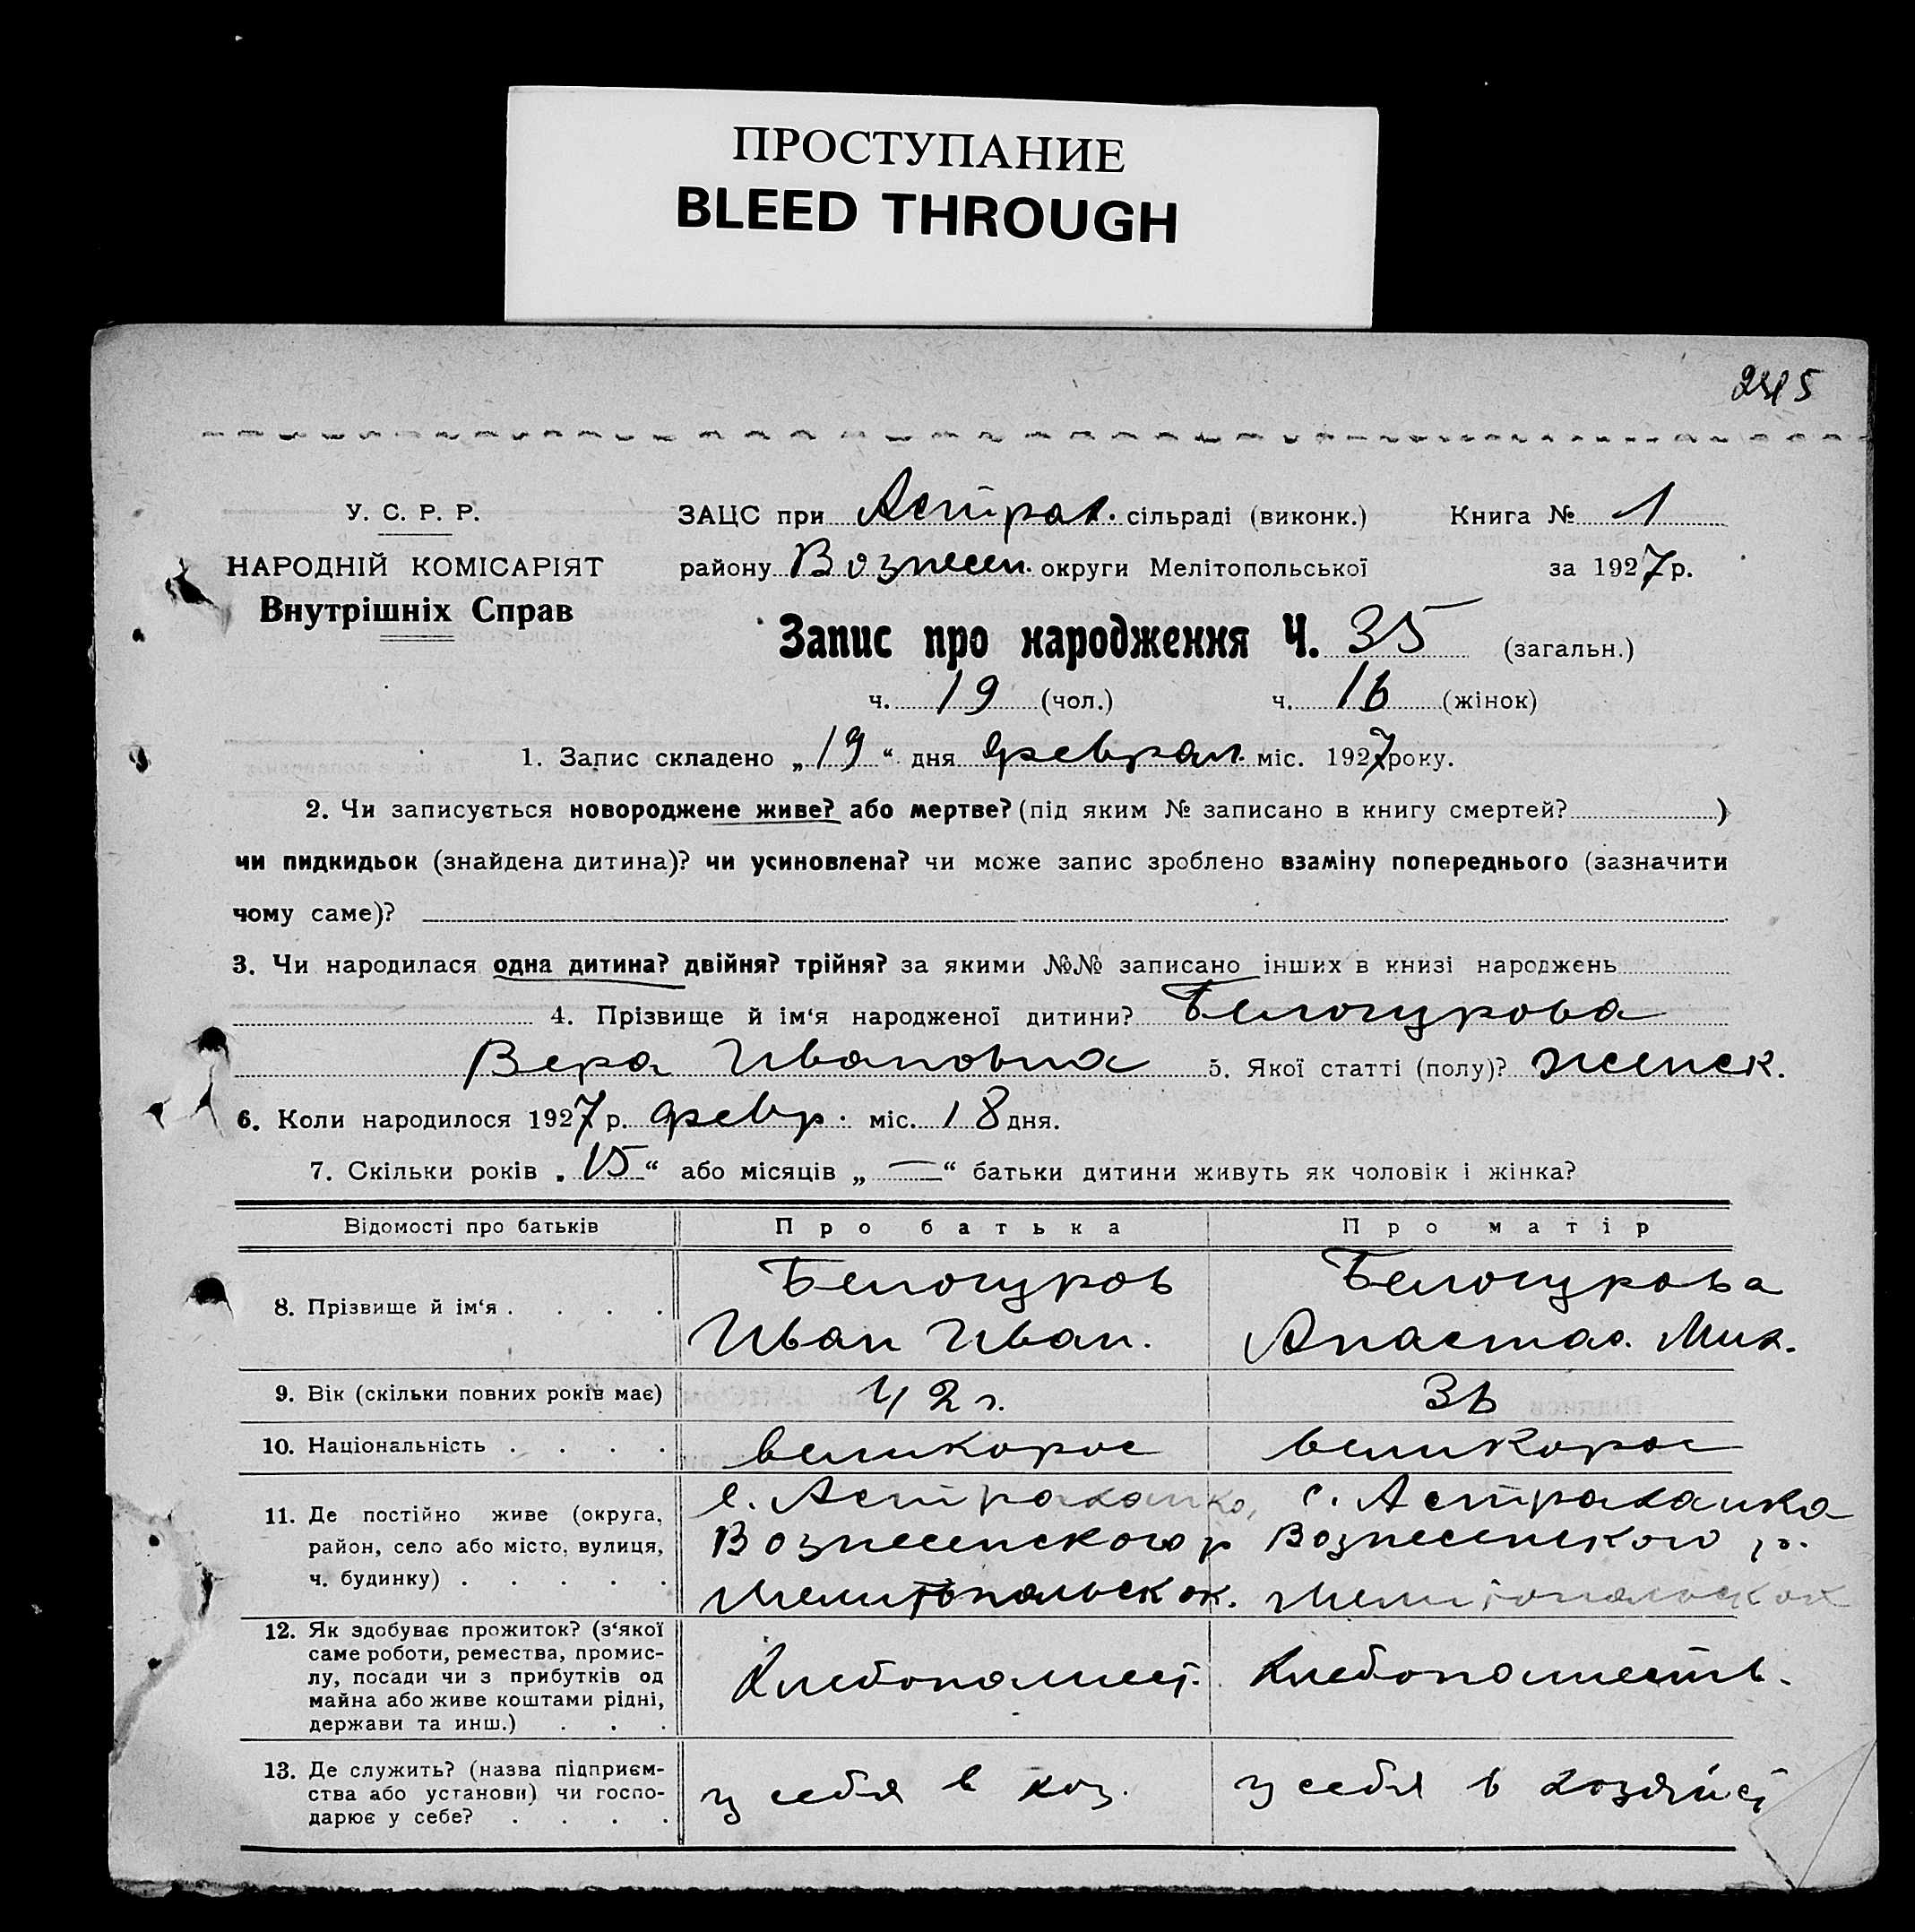 ПРОСТУПАНИЕ
BLEED THROUGH
У. С. Р. Р.
НАРОДНІЙ КОМІСАРІЯТ
Внутрішніх Справ
ЗАЦС при Астрах. сільраді (виконк.) Книга № 1
району Вознесен. округи Мелітопольської за 1927 р.
Запис про народження Ч. 35 (загальн.)
ч. 19 (чол.) ч. 16 (жінок)
1. Запис складено „19“ дня феврал. міс. 1927 року.
2. Чи записується новороджене живе? або мертве? (під яким № записано в книгу смертей? )
чи пидкидьок (знайдена дитина)? чи усиновлена? чи може запис зроблено взаміну попереднього (зазначити
чому саме)?
3. Чи народилася одна дитина? двійня? трійня? за якими №№ записано інших в книзі народжень
4. Прізвище й ім‘я народженої дитини? Белогурова
Вера Ивановна 5. Якої статті (полу)? женск.
6. Коли народилося 1927 р. февр. міс. 18 дня.
7. Скільки років „15“ або місяців „—“ батьки дитини живуть як чоловік і жінка?
Відомості про батьків Про батька Про матір
8. Прізвище й ім‘я . . . .
Белогуров Белогурова
Иван Иван. Анастас. Мих.
9. Вік (скільки повних років має) 42 г. 36
10. Національність . . . . великорос великорос
11. Де постійно живе (округа,
район, село або місто, вулиця,
ч. будинку) . . . . .
с. Астраханка, с. Астраханка
Вознесенского р Вознесенского р.
Мелитопольск ок. Мелитопольск ок
12. Як здобуває прожиток? (з‘якої
саме роботи, ремества, промис-
лу, посади чи з прибутків од
майна або живе коштами рідні,
держави та инш.) . . .
Хлебопашест. Хлебопашеств.
13. Де служить? (назва підприєм-
ства або установи) чи госпо-
дарює у себе? . . . .
у себя в хоз. у себя в хозяйст